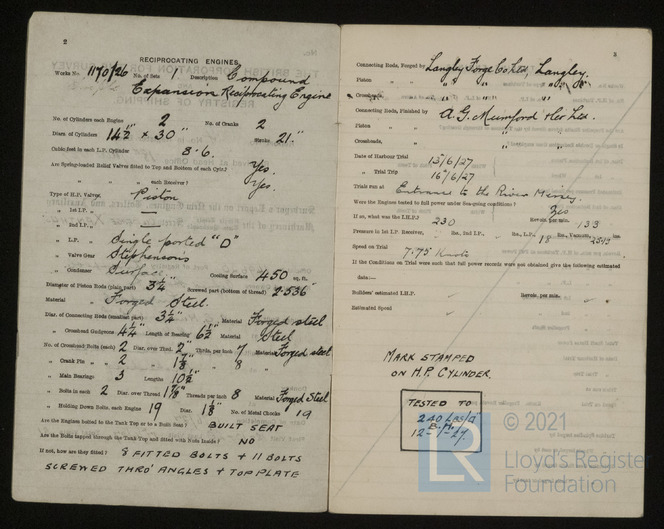 2
RECIPROCATING ENGINES.
Works No. 1170/26 No. of Sets 1 Description Compound
Expansion Reciprocating Engine
No. of Cylinders each Engine 2 No. of Cranks 2
Diars. of Cylinders 14½" × 30" Stroke 21."
Cubic feet in each L.P. Cylinder 8.6.
Are Spring-loaded Relief Valves fitted to Top and Bottom of each Cylr.? Yes.
" " each Receiver? Yes.
Type of H.P. Valves, Piston
" 1st I.P. " —
" 2nd I.P. " —
" L.P. " Single ported "D"
" Valve Gear Stephensons
" Condenser Surface. Cooling Surface 450 sq. ft.
Diameter of Piston Rods (plain part) 3¼ Screwed part (bottom of thread) 2.536"
Material Forged Steel.
Diar. of Connecting Rods (smallest part) 3¼" Material Forged steel
" Crosshead Gudgeons 4¼" Length of Bearing 6½" Material Steel
No. of Crosshead Bolts (each) 2 Diar. over Thrd. 2" Thrds. per inch 7 Material Forged steel
" Crank Pin " 2 " 1⅞" " 8 "
" Main Bearings 3 Lengths 10½"
" Bolts in each 2 Diar. over Thread 1⅞" Threads per inch 8 Material Forged Steel
" Holding Down Bolts, each Engine 19 Diar. 1⅛" No. of Metal Chocks 19
Are the Engines bolted to the Tank Top or to a Built Seat? BUILT SEAT
Are the Bolts tapped through the Tank Top and fitted with Nuts Inside? NO
If not, how are they fitted? 8 FITTED BOLTS + 11 BOLTS
SCREWED THRO' ANGLES + TOP PLATE
3
Connecting Rods, Forged by Langley Forge Co Ltd, Langley.
Piston " "
Crossheads, "
Connecting Rods, Finished by A. G. Mumford
Piston " "
Crossheads, " "
Date of Harbour Trial 13/6/27
" Trial Trip 16/6/27
Trials run at Entrance to the River Mersey.
Were the Engines tested to full power under Sea-going conditions? Yes
If so, what was the I.H.P.? 230 Revols. per min. 133
Pressure in 1st I.P. Receiver, lbs., 2nd I.P., lbs., L.P., 18 lbs., Vacuum, ins.
Speed on Trial 7.75 Knots
If the Conditions on Trial were such that full power records were not obtained give the following estimated
data:—
Builders' estimated I.H.P. Revols. per min.
Estimated Speed
MARK STAMPED
ON H.P. CYLINDER.
TESTED TO
240 Lbs/□"
12-1-27.
LR
© 2021
Lloyd's Register
Foundation